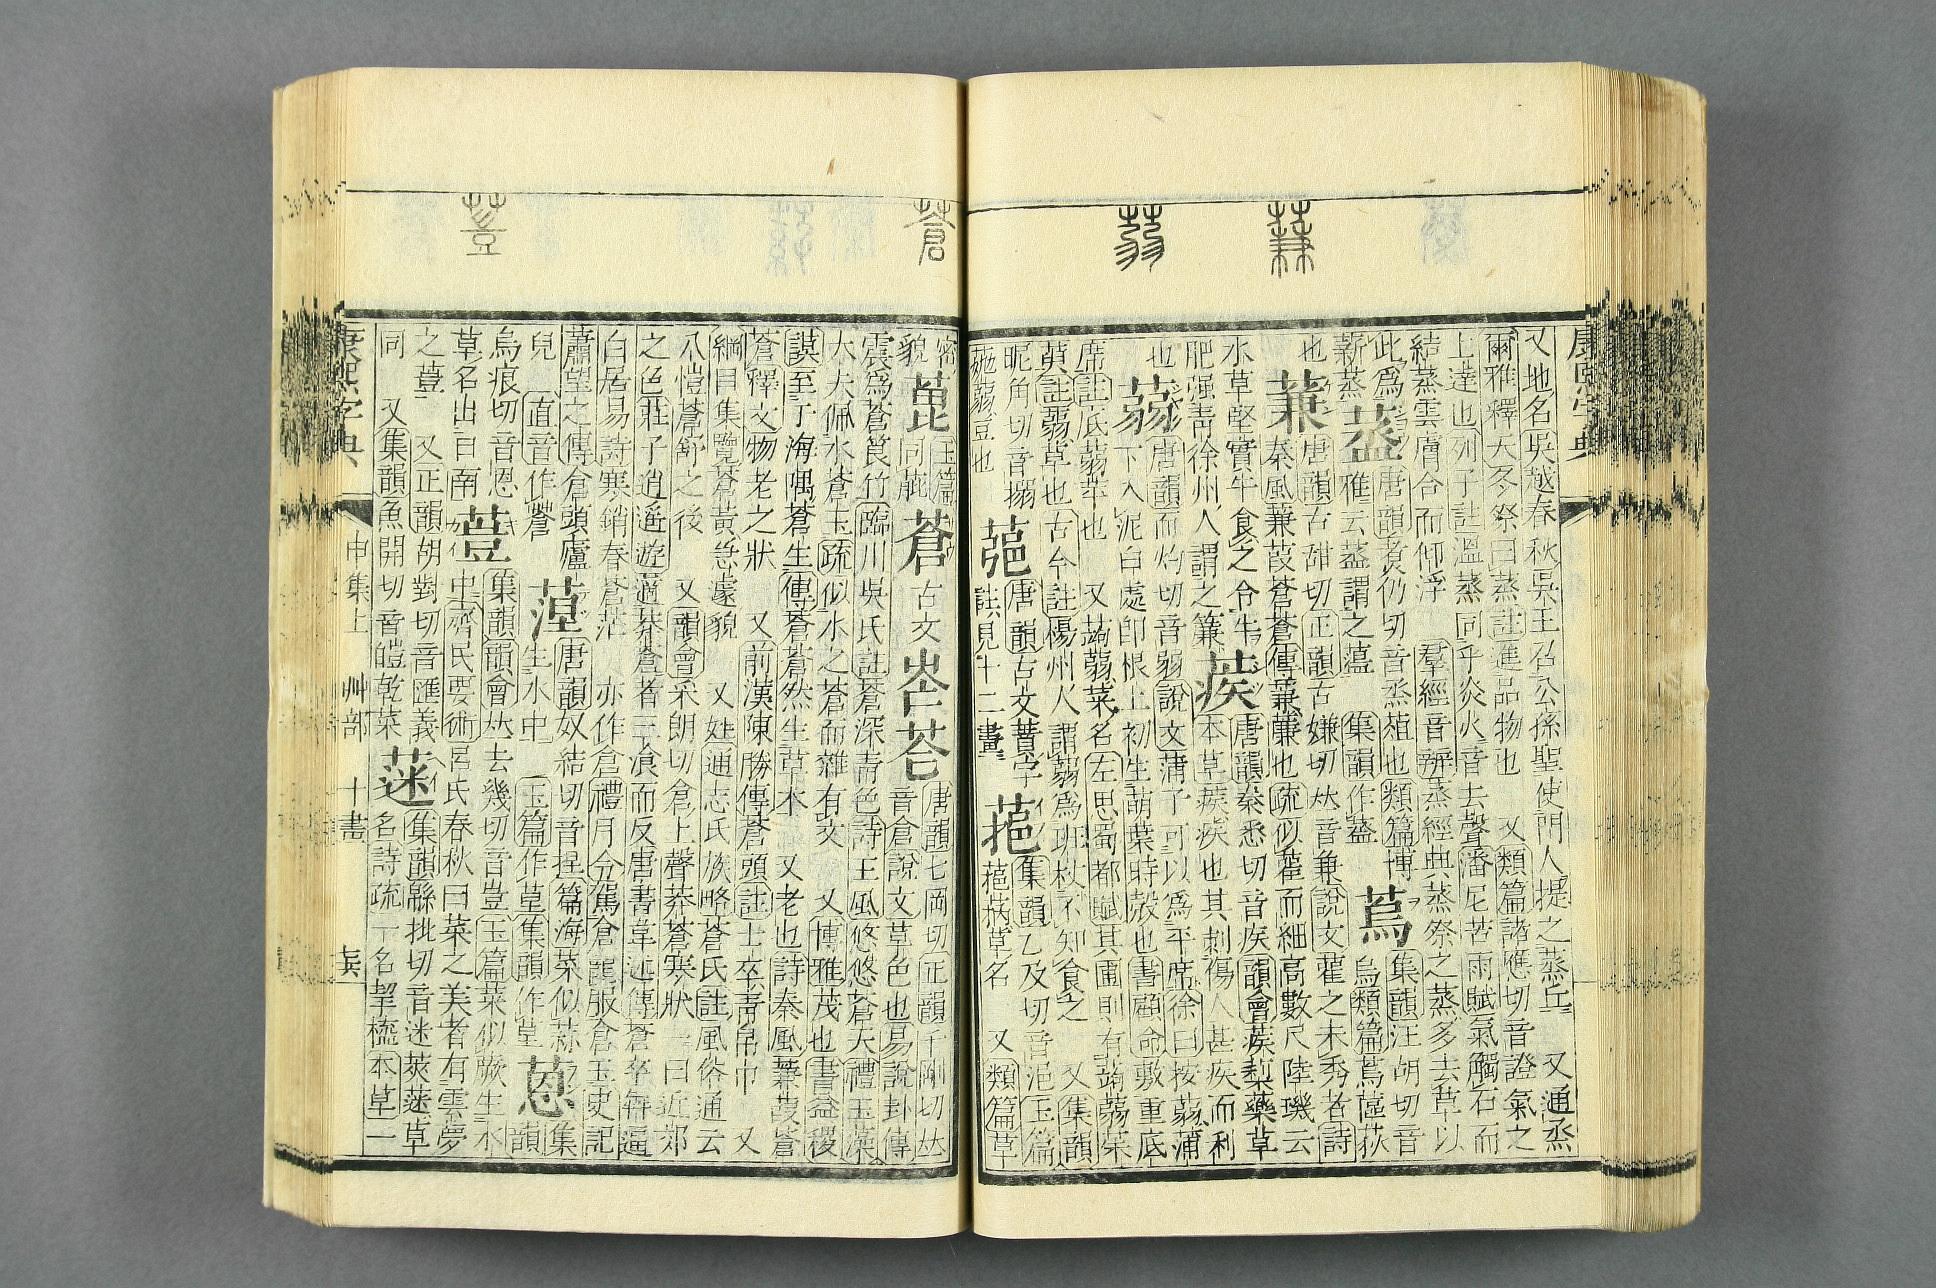 又地名吳越春秋吳王召公孫聖使門人提之蒸丘　又通烝
爾雅釋天冬祭曰蒸註進品物也　又類篇諸應切音證氣之
上達也列子註溫蒸同乎炎火音去聲潘尼苦雨賦氣觸石而
結蒸雲膚合而仰浮　羣經音辨蒸經典蒸祭之蒸多去草以
此爲
薪蒸
唐韻煑仍切音烝菹也類篇博
雅云謂之薀　集韻作
集韻汪胡切音
烏類篇蔦蓲荻
也
蒹
唐韻古甜切正韻古嫌切𠀤音兼說文雚之未秀者詩
秦風蒹葭蒼蒼傳蒹薕也疏似雚而細高數尺陸璣云
水草堅實牛食之令牛
肥强靑徐州人謂之薕
蒺
唐韻秦悉切音疾韻會蒺蔾藥草
本草蒺疾也其刺傷人甚疾而利
也
蒻
唐韻而灼切音弱說文蒲子可以爲平席徐曰按蒻蒲
下入泥白處卽根上初生萌葉時殻也書顧命敷重底
席註底蒻苹也　又蒟蒻菜名左思蜀都賦其圃則有蒟蒻茱
萸註蒻草也古今註楊州人謂蒻爲斑杖不知食之　又集韻
昵角切音搦
蒻豆也
唐韻古文蕡字
註見十二畫
集韻乙及切音浥玉篇
草名　又類篇草
密
貌
蓖
玉篇
同蓖
蒼
古文
唐韻七岡切正韻千剛切𠀤
音倉說文草色也易說卦傳
震爲蒼筤竹臨川吳氏註蒼深靑色詩王風悠悠蒼天禮玉藻
大夫佩水蒼玉疏似水之蒼而雜有文　又博雅茂也書益稷
謨至于海隅蒼生傳蒼蒼然生草木　又老也詩秦風蒹葭蒼
蒼釋文物老之狀　又前漢陳勝傳蒼頭註士卒靑帛巾　又
綱目集覽蒼黃怱遽貌　又姓通志氏族略蒼氏註風俗通云
八愷蒼舒之後　又韻會采朗切倉上聲莽蒼寒狀一曰近郊
之色莊子逍遙遊適莽蒼者三飡而反唐書韋述傳蒼卒犇逼
白居易詩寒銷春蒼茫　亦作倉禮月令駕倉龍服倉玉史記
蕭望之傳倉頭廬
兒　直音作蒼
唐韻奴結切音捏篇海菜似蒜
生水中　玉篇作集韻作
蒽
集韻
烏痕切音恩
草名出日南
集韻韻會𠀤去幾切音豈玉篇菜似蕨生水
中齊民要術呂氏春秋曰菜之美者有雲夢
之　又正韻胡對切音匯義
同　又集韻魚開切音皚乾菜
蒾
集韻緜批切音迷莢蒾草
名詩疏一名挈𣝅本草一
康熙字典
申集上　艸部　十畫